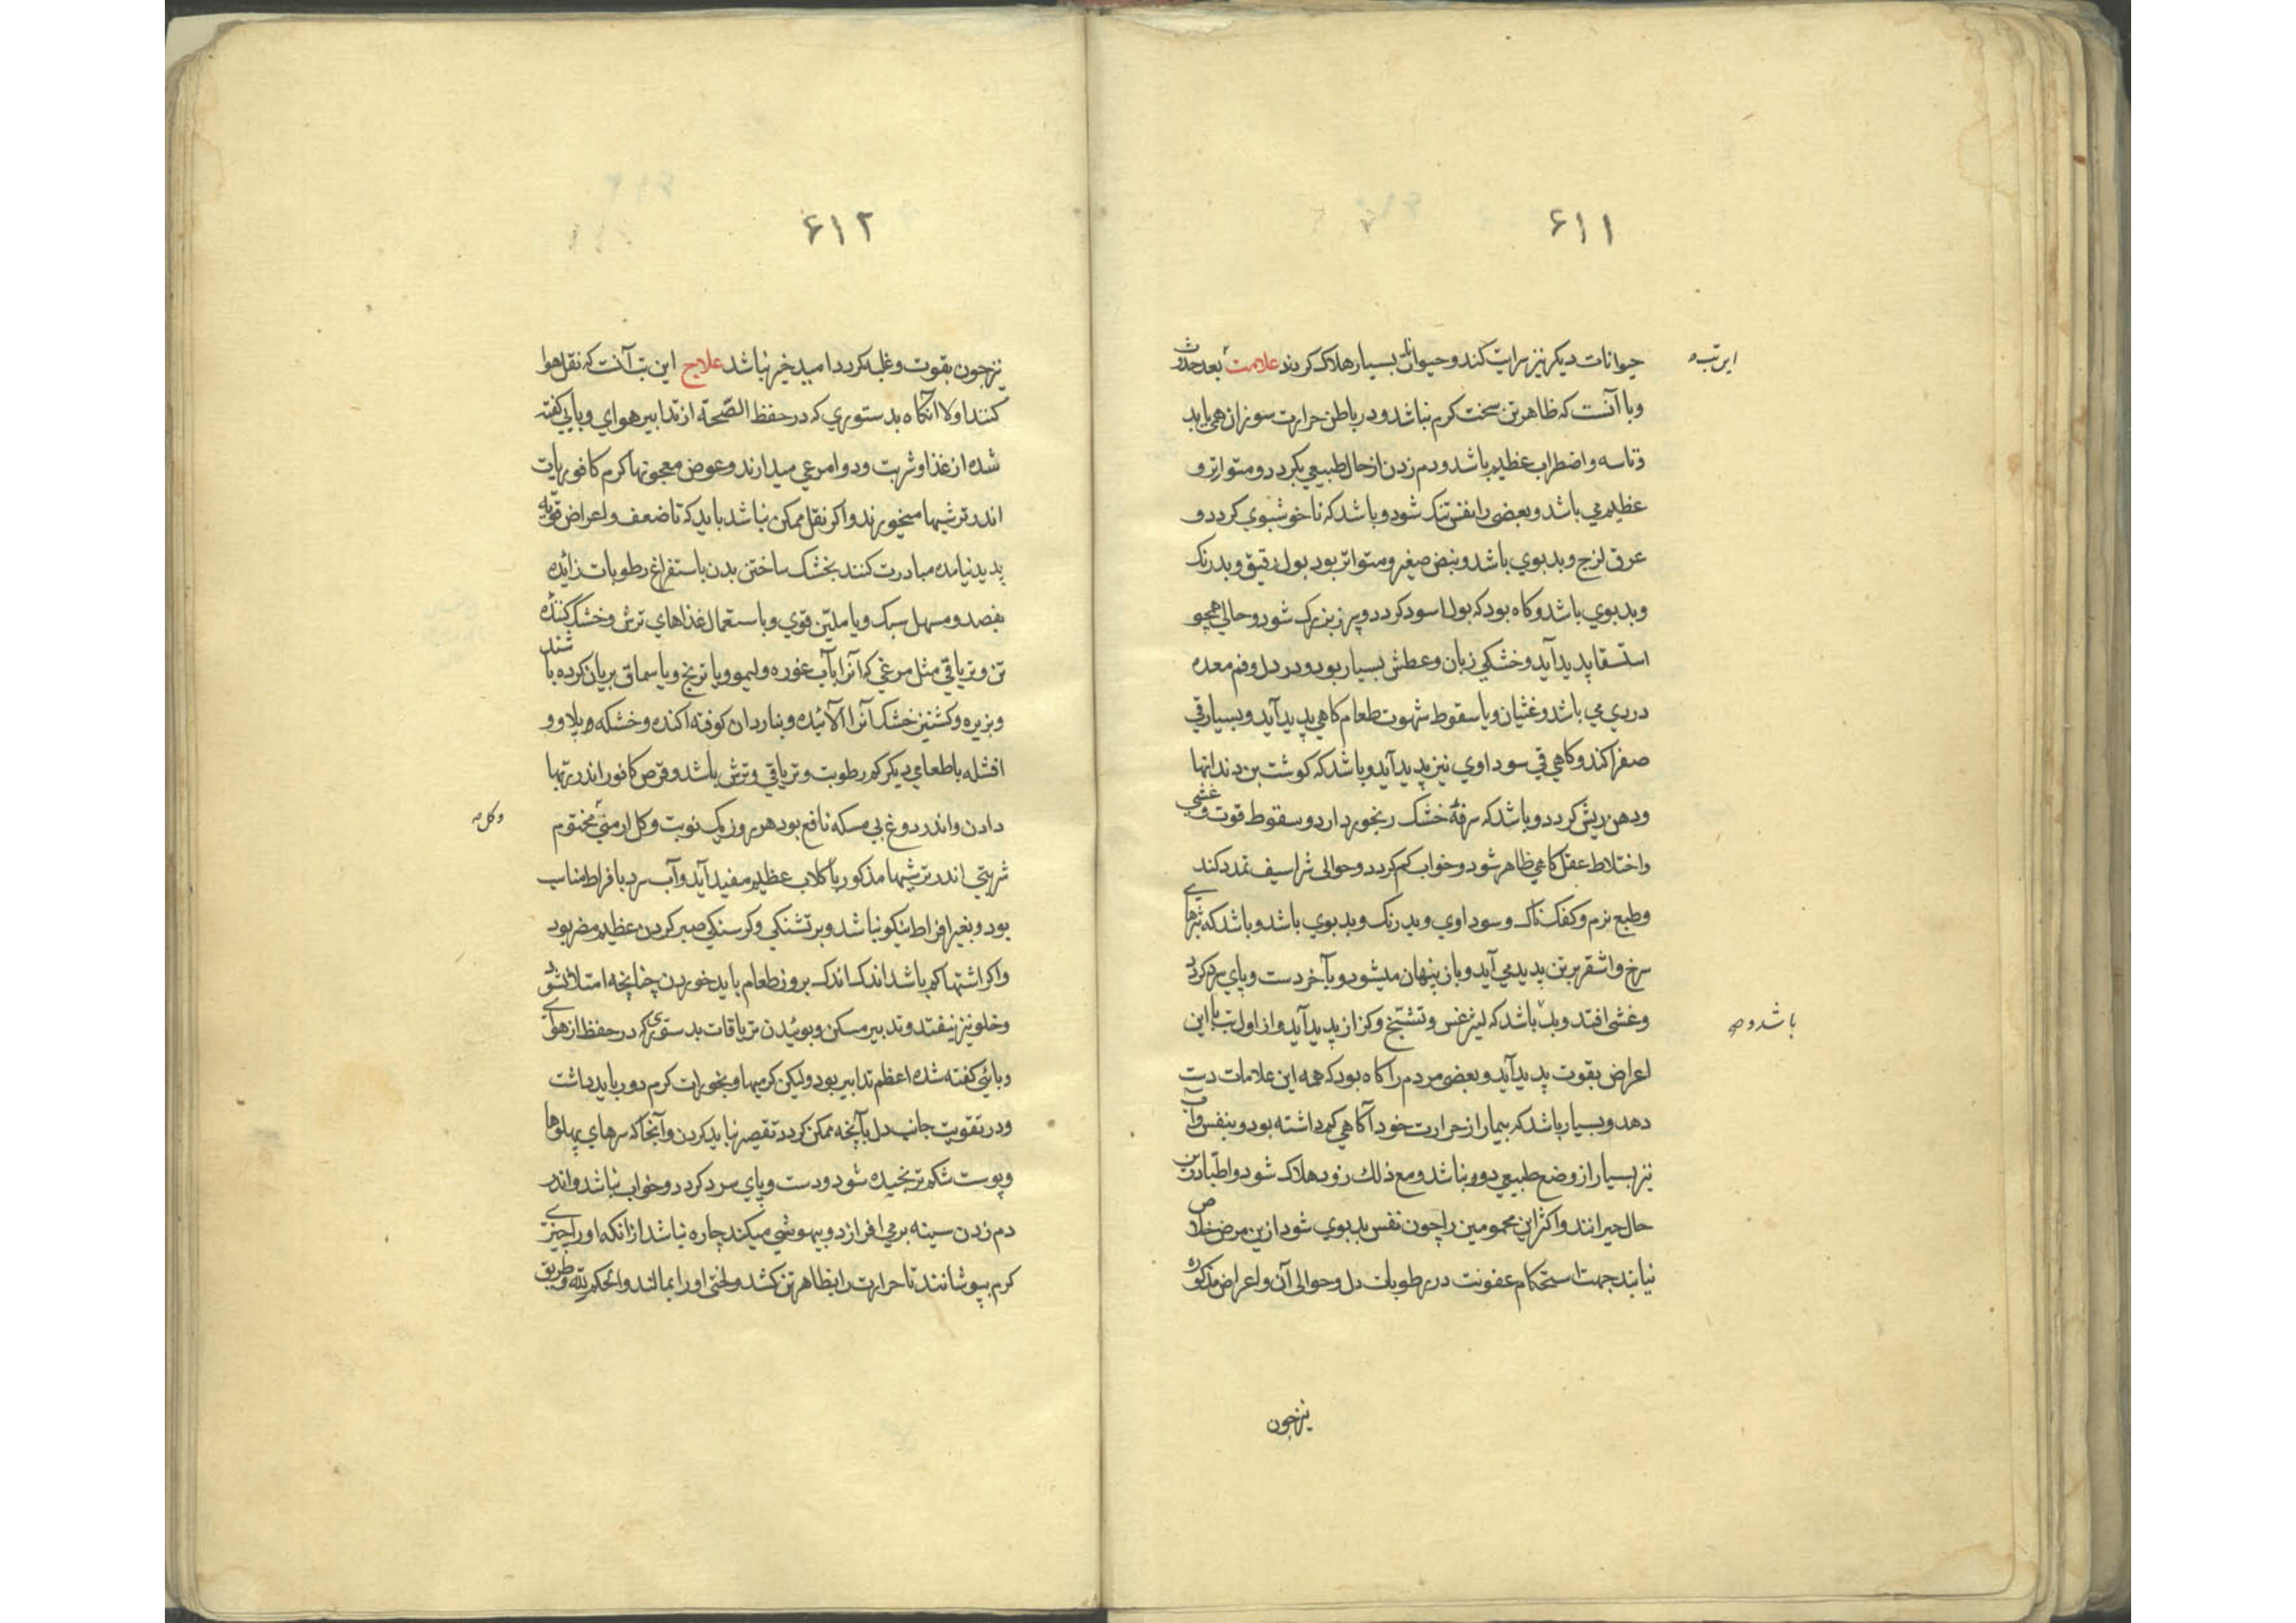 ۶۱۱
حیوانات دیکر نیز سرایت کند و حیوانات بسیار هلاک کردند علامت بعد حدوث
این تب
وبا آنست که ظاهر تن سخت کرم نباشد و در باطن حرارت سوزان همی یابد
و تاسه و اضطراب عظیم باشد و دم زدن از حال طبیعی بکردد و متواتر و
عظیم می باشد و بعضی را نفس تنک شود و باشد که ناخوشبوی کردد و
عرق لزج و بدبوی باشد و نبض صغیر و متواتر بود بول رقیق و بدرنک
و بدبوی باشد و کاه بود که بول اسود کردد و سپرز بزرک شود و حالی همچو
استسقا پدید آید و خشکی زبان و عطش بسیار بود و در دل و فم معده
دردی می باشد و غثیان و یا سقوط شهوت طعام کاهی پدید آید و بسیار قی
صفرا کند و کاهی قی سوداوی نیز پدید آید و باشد که کوشت بن دندانها
و دهن ریش کردد و باشد که سرفهٔ خشک رنجور دارد و سقوط قوت و غشی
و اختلاط عقل کاهی ظاهر شود و خواب کم کردد و حوالی شراسیف تمدد کند
و طبع نرم و کفک ناک و سوداوی و بدرنک و بدبوی باشد و باشد که بثرهای
سرخ و اشقر بر تن پدید می آید و باز پنهان میشود و بآخر دست و پای سرد کردد
و غشی افتد و باشد که لیثرغس و تشنج و کزاز پدید آید و از اول تب با این
باشد و
اعراض بقوت پدید آید و بعضی مردم را کاه بود که همه این علامات دست
دهد و بسیار باشد که بیمار از حرارت خود آکاهی کم داشته بود و بنفس و آب
نیز بسیار از وضع طبیعی دور نباشد و مع ذلک زود هلاک شود و اطبا در این
حال حیرانند و اکثر این محمومین را چون نفس بدبوی شود ازین مرض خلاص
نیابند جهت استحکام عفونت در رطوبات دل و حوالی آن و اعراض مذکوره
نیز چون
۶۱۲
نیز چون بقوت و غلبه کردد امید خیر نباشد علاج این تب آنست که نقل هوا
کنند اولا آنکاه بدستوری که در حفظ الصّحة از تدابیر هوای وبایی کفته
شده از غذا و شربت و دوا مرعی میدارند و عوض معجونها کرم کافوریات
اندر ترشیها میخورند و اکر نقل ممکن نباشد باید که تا ضعف و اعراض قویّه
پدید نیامده مبادرت کنند بخشک ساختن بدن باستفراغ رطوبات زایده
بفصد و مسهل سبک و یا ملیّن قوی و باستعمال غذاهای ترش و خشک کننده
تن و تریاقی مثل مرغی که آنرا بآب غوره و لیمو و یا ترنج و یا سماق بریان کرده باشند
و بزیره و کشنیز خشک آنرا آلائیده و بناردان کوفته آکنده و خشکه و پلاو و
افشله با طعامی دیکر کم رطوبت و تریاقی و ترش باشد و قرص کافور اندر ربها
دادن و اندر دوغ بی مسکه نافع بود هر روز یک نوبت و کل ارمنی مختوم
و کل
شربتی اندر ترشیها مذکور یا کلاب عظیم مفید آید و آب سرد بافراط مناسب
بود و بغیر افراط نیکو نباشد و بر تشنکی و کرسنکی صبر کردن عظیم مضر بود
و اکر اشتها کم باشد اندک اندک بروز طعام باید خوردن چنانچه امتلا نشود
و خلو نیز نیفتد و تدبیر مسکن و بوئیدن تریاقات بدستوری که در حفظ از هوای
وبائی کفته شده اعظم تدابیر بود ولیکن کرمیها و بخورات کرم دور باید داشت
و در تقویت جانب دل بآنچه ممکن کردد تقصیر نباید کردن و آنجا که سرهای پهلوها
و پوست شکم ترنجیده شود و دست و پای سرد کردد و خواب نباشد و اندر
دم زدن سینه برمی افرازد و بیهوشی میکند چاره نباشد از آنکه او را بچیزی
کرم بپوشانند تا حرارت را بظاهر تن کشد و لختی او را بمالند و الحکم لله و طریق